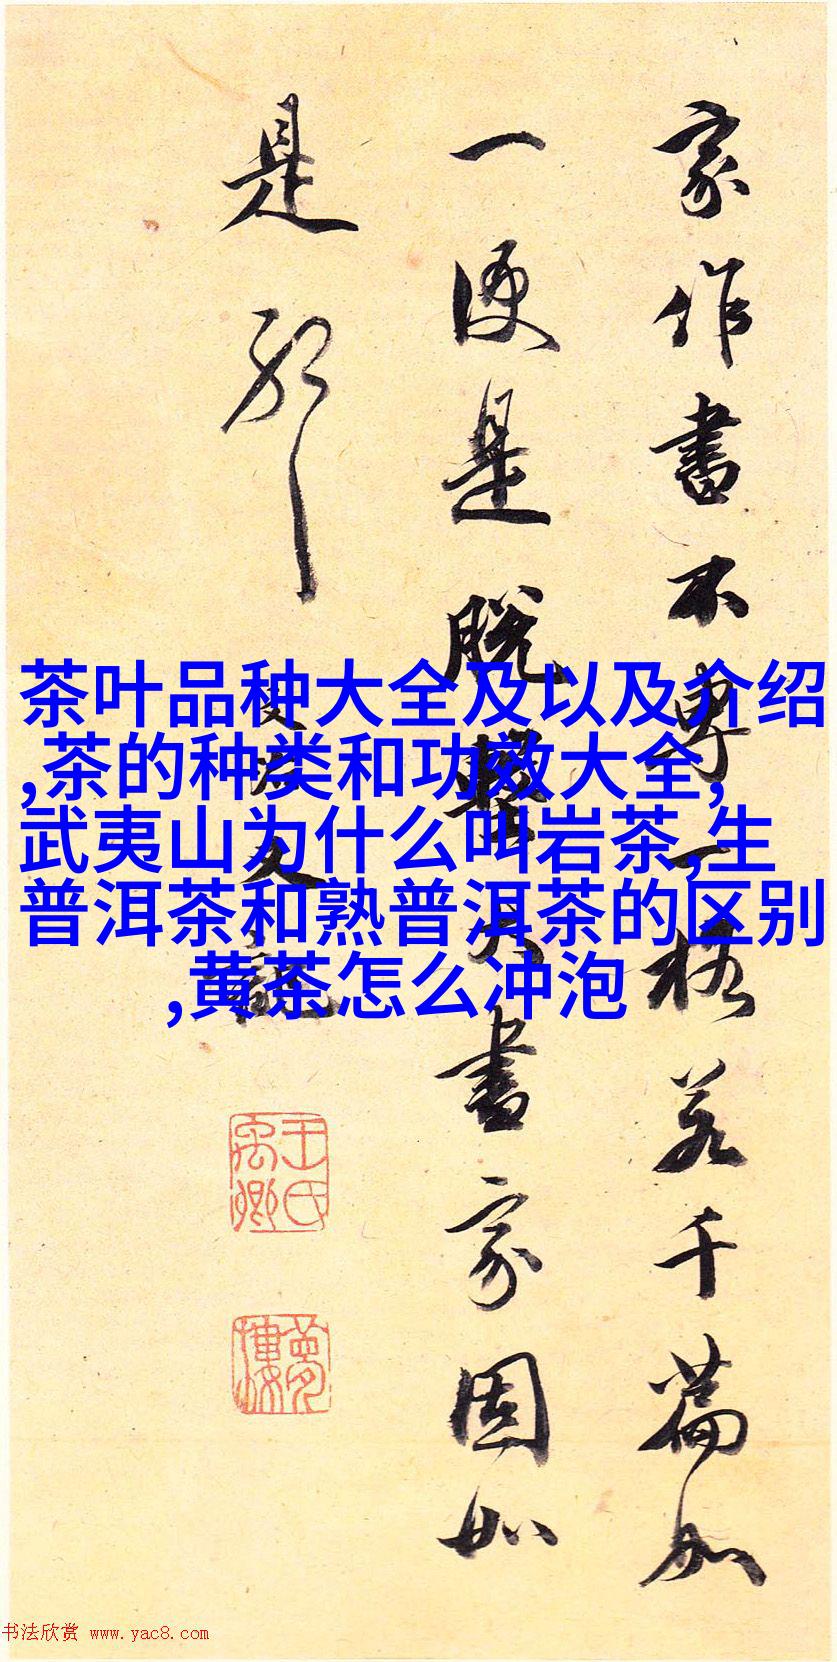 茶叶品种大全及以及介绍
,茶的种类和功效大全,
武夷山为什么叫岩茶,生
普洱茶和熟普洱茶的区别
,黄茶怎么冲泡
家作書不專一格若千篇如
一便是脫書家固如
是耶
王氏禹卿
夢樓
书法欣赏 www.yac8.com